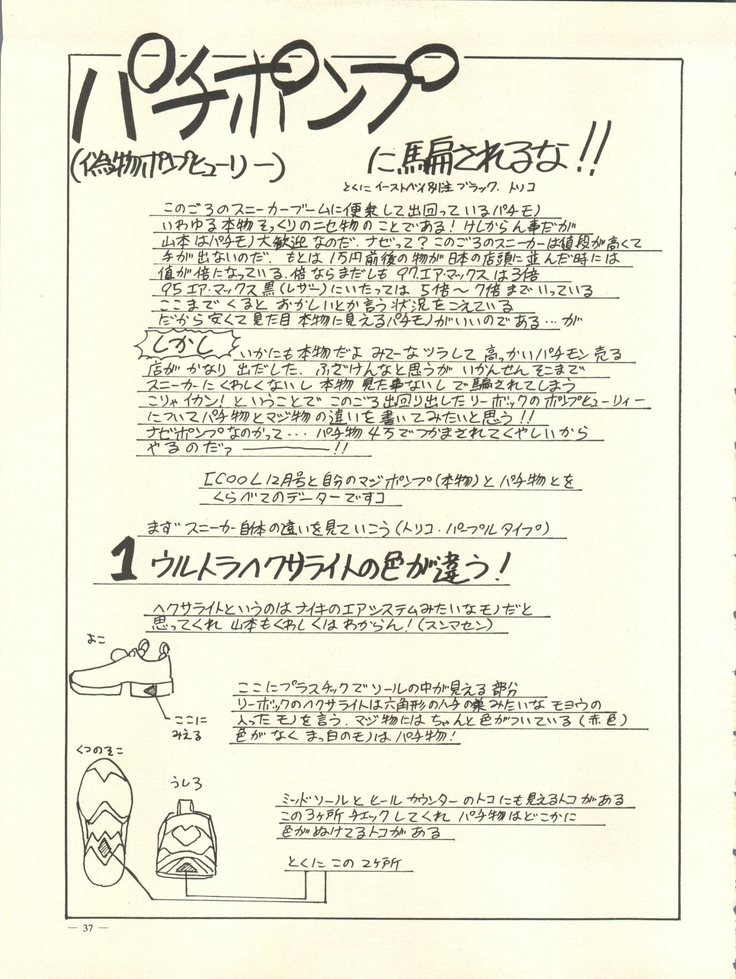 パチポンプ
(偽物ポンプヒューリー)
に騙されるな!!
とくに イーストベイ別注 ブラック. トリコ
このごろのスニーカーブームに便乗して出回っているパチモノ
いわゆる本物そっくりのニセ物のことである! けしからん事だが
山本はパチモノ大歓迎なのだ. ナゼって? このごろのスニーカーは値段が高くて
手が出ないのだ. もとは1万円前後の物が日本の店頭に並んだ時には
値が倍になっている. 倍ならまだしも 97.エア・マックス は3倍
95エア・マックス 黒(レザー)にいたっては 5倍〜7倍までいっている
ここまでくると おかしいとか言う状況をこえている
だから安くて見た目本物に見えるパチモノがいいのである…が
しかし
いかにも本物だよ みてーなツラして 高っかいパチモン売る
店が かなり出だした. ふざけんなと思うが いかんせん そこまで
スニーカーにくわしくないし 本物見た事ないしで騙されてしまう
こりゃイカン! ということで このごろ出回り出したリーボックのポンプヒューリィー
についてパチ物とマジ物の違いを書いてみたいと思う!!
ナゼポンプなのかって… パチ物4万でつかまされてくやしいから
やるのだァ――――!!
[COOL12月号と自分のマジポンプ(本物)とパチ物とを
くらべてのデーターですコ
まず スニーカー自体の違いを見ていこう(トリコ・パープルタイプ)
1 ウルトラヘクサライトの色が違う!
ヘクサライトというのはナイキのエアシステムみたいなモノだと
思ってくれ 山本もくわしくはわからん!(スンマセン)
よこ
ここに
みえる
ここにプラスチックでソールの中が見える部分
リーボックのヘクサライトは六角形のハチの巣みたいな モヨウの
入ったモノを言う. マジ物には ちゃんと色がついている(赤色)
色がなく まっ白のモノは パチ物!
くつのそこ
うしろ
ミッドソールと ヒールカウンターのトコにも見えるトコがある
この3ヶ所 チェックしてくれ パチ物はどこかに
色がぬけてるトコがある
とくに この 2ヶ所
— 37 —